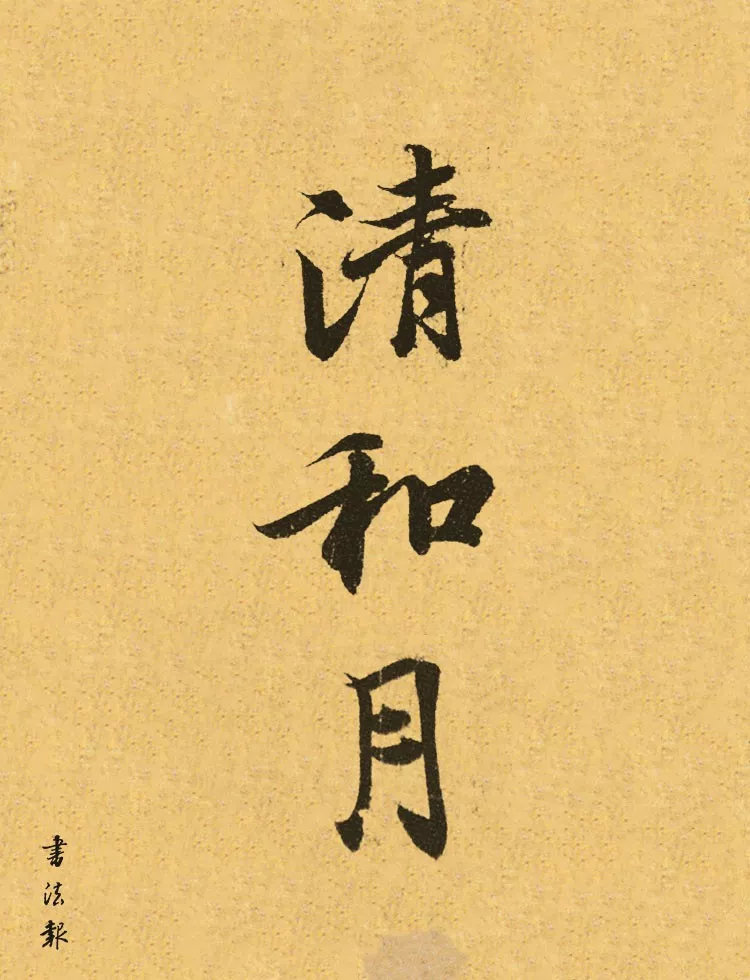 清和月
书法報